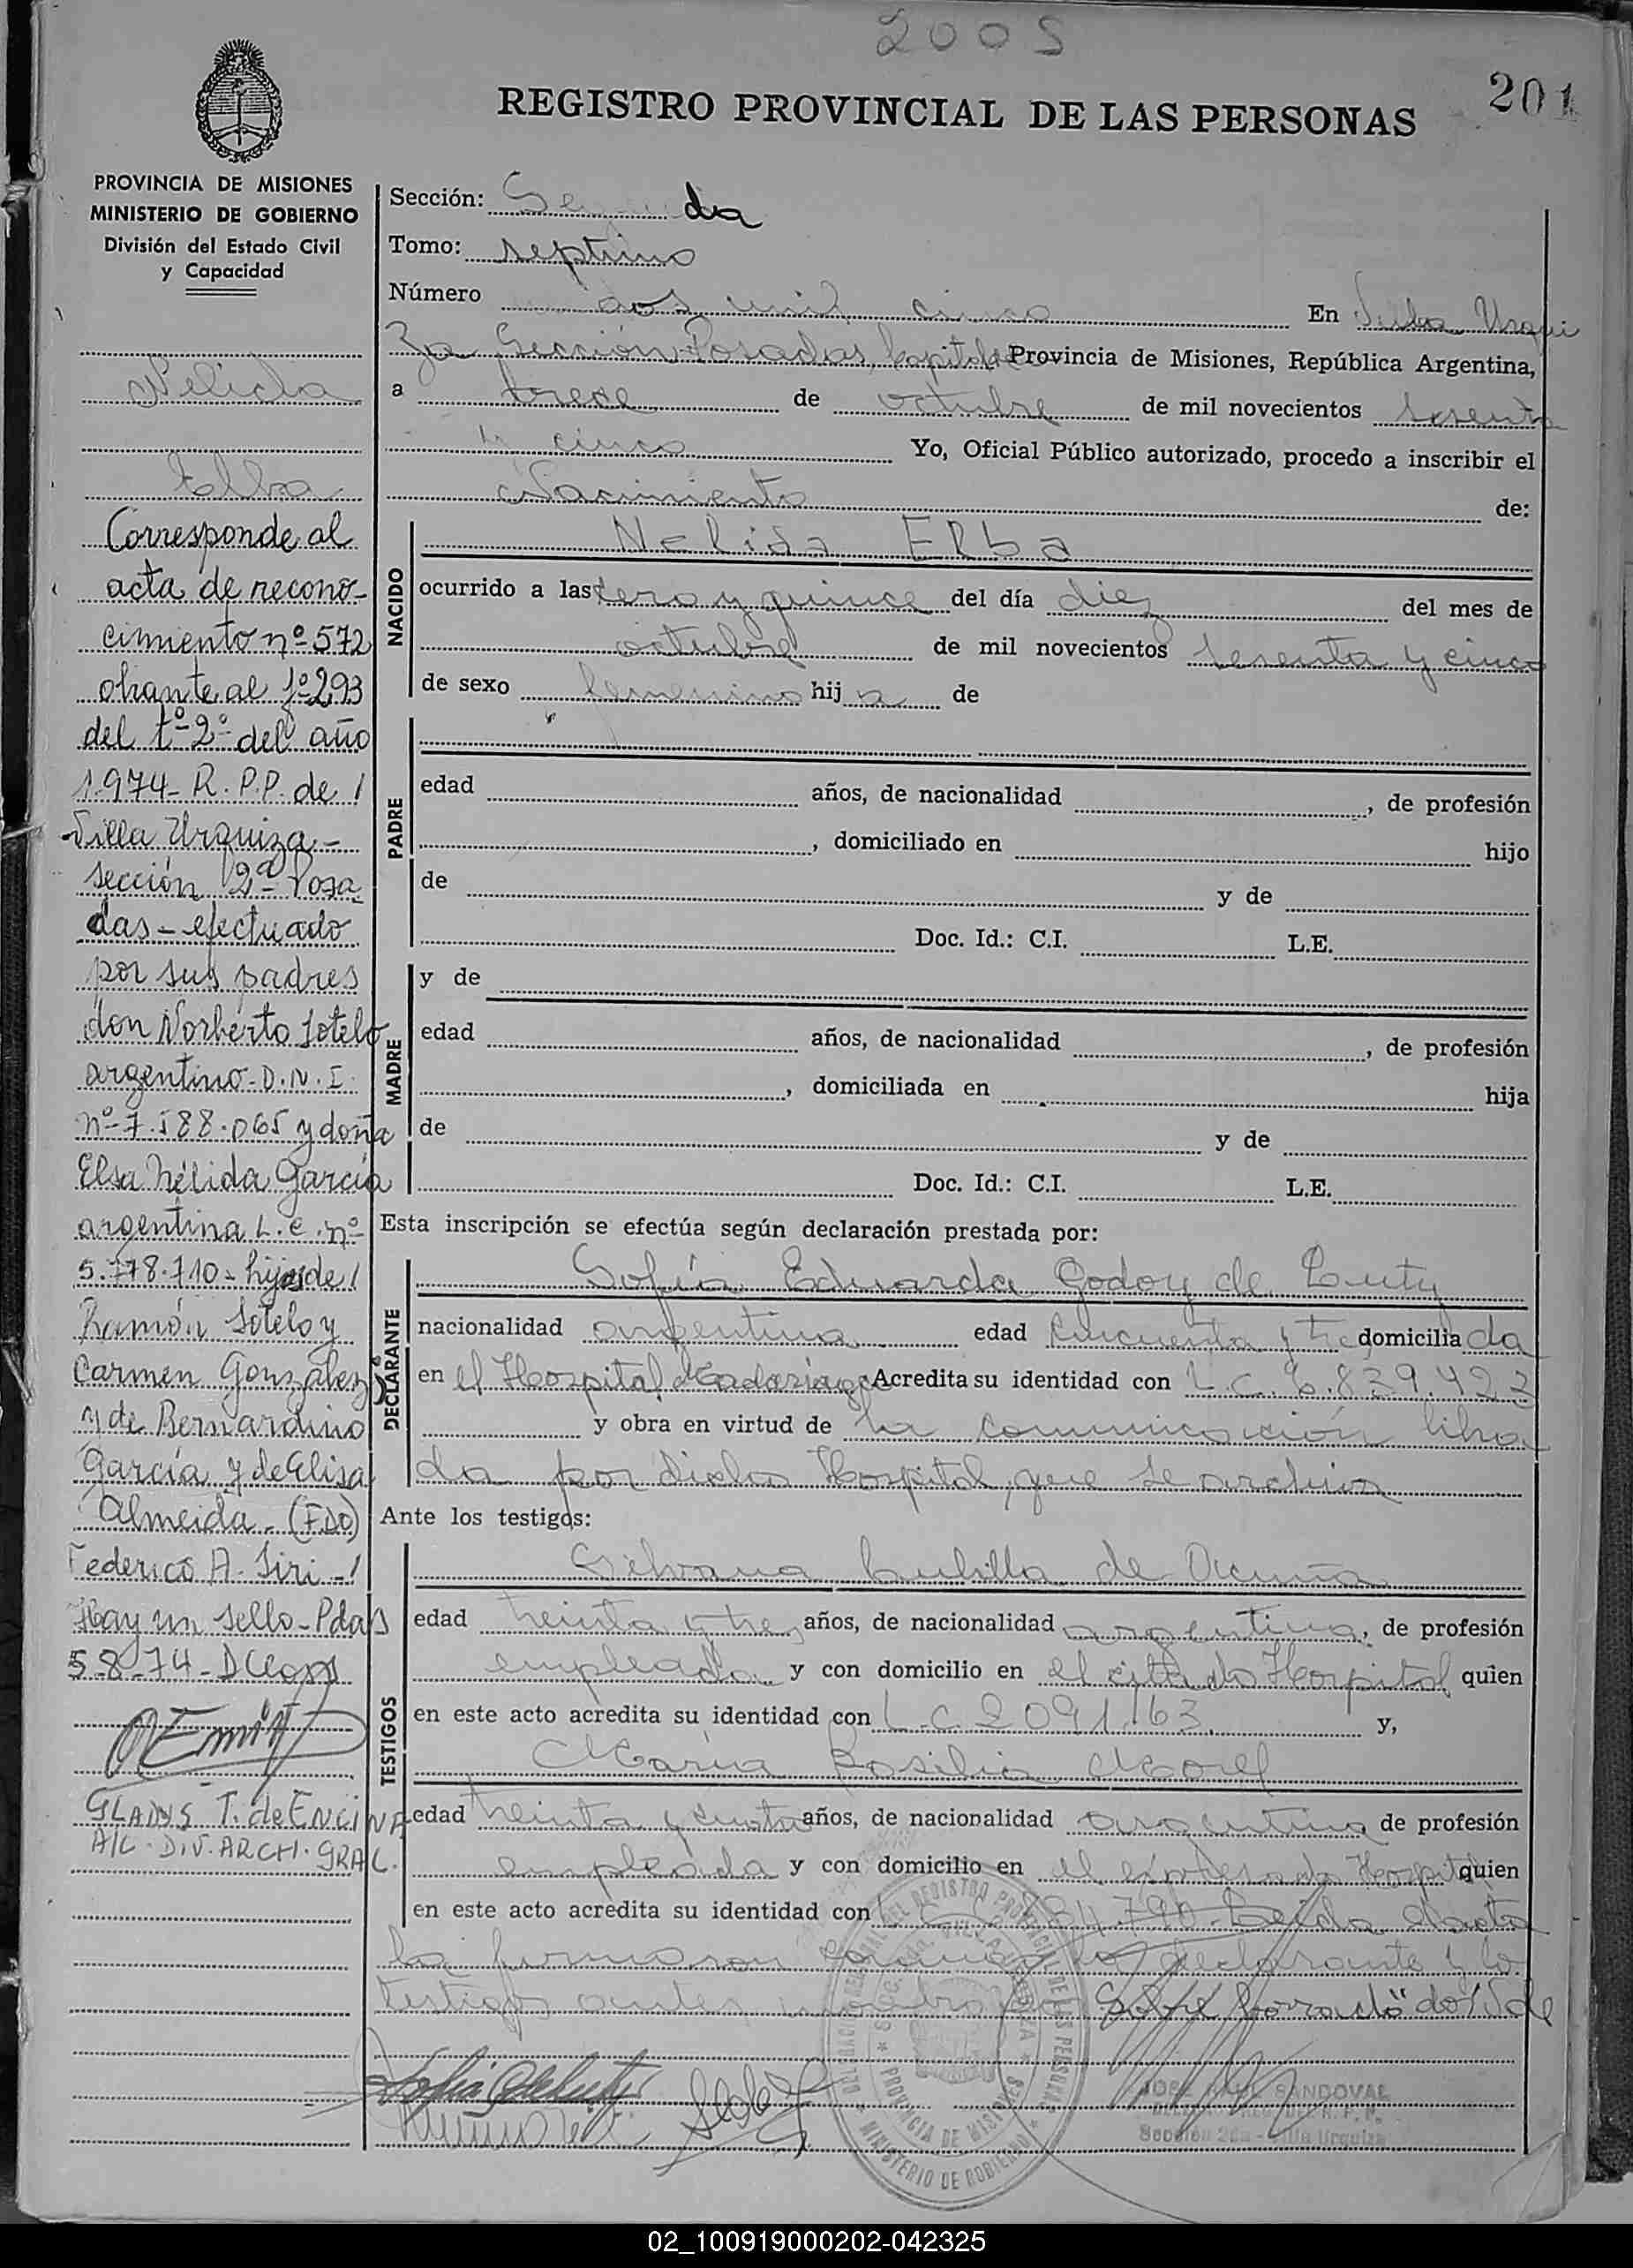 2005
201
REGISTRO PROVINCIAL DE LAS PERSONAS
PROVINCIA DE MISIONES
MINISTERIO DE GOBIERNO
División del Estado Civil
y Capacidad
Sección: Segunda
Tomo: septimo
Número dos mil cinco En Villa Urqui
za Sección Posadas, Capital de Provincia de Misiones, República Argentina,
a trece de octubre de mil novecientos sesenta
y cinco Yo, Oficial Público autorizado, procedo a inscribir el
Nacimiento de:
NACIDO
Nelida Elba
ocurrido a las cero y quince del día diez del mes de
octubre de mil novecientos sesenta y cinco
de sexo femenino hij a de
PADRE
edad años, de nacionalidad , de profesión
, domiciliado en hijo
de y de
Doc. Id.: C.I. L.E.
MADRE
y de
edad años, de nacionalidad , de profesión
, domiciliada en hija
de y de
Doc. Id.: C.I. L.E.
Esta inscripción se efectúa según declaración prestada por:
DECLARANTE
Sofía Eduarda Godoy de
nacionalidad argentina edad cincuenta y tre domicilia da
en el Hospital Madariaga Acredita su identidad con L.C. 6.839.423
y obra en virtud de la comunicación libra
da por dicho Hospital, que se archiva
Ante los testigos:
TESTIGOS
Silvana Cubilla de Acuña
edad treinta y tres años, de nacionalidad argentina, de profesión
empleada y con domicilio en el citado Hospital quien
en este acto acredita su identidad con L.C. 2091.163. y,
María Rosilia Morel
edad treinta y cuatro años, de nacionalidad argentina de profesión
empleada y con domicilio en el expresado Hospital quien
en este acto acredita su identidad con 790. Leída el acta
la firmaron conmigo la declarante y los
testigos antes Sobre borrado
Nelida
Elba
Corresponde al
acta de recono-
cimiento nº 572
obrante al fº 293
del tº 2º del año
1974- R.P.P. de /
Villa Urquiza.-
sección 2ª Posa
das - efectuado
por sus padres
don Norberto Sotelo
argentino- D.N.I.
nº 7.588.065 y doña
Elsa Nélida García
argentina L.C. nº
5.778.710- hijos de /
Ramón Sotelo y
Carmen González
y de Bernardino
García y de Elisa
Almeida - (FDO)
Federico A. Siri -/
Hay un sello - Pdas
5-8-74-
GLADYS T. de ENCINA
A/C. DIV. ARCH. GRAL.
JOSE RAUL SANDOVAL
Sección 2da - Villa Urquiza
PROVINCIA DE MISIONES
MINISTERIO DE GOBIERNO
02_100919000202-042325